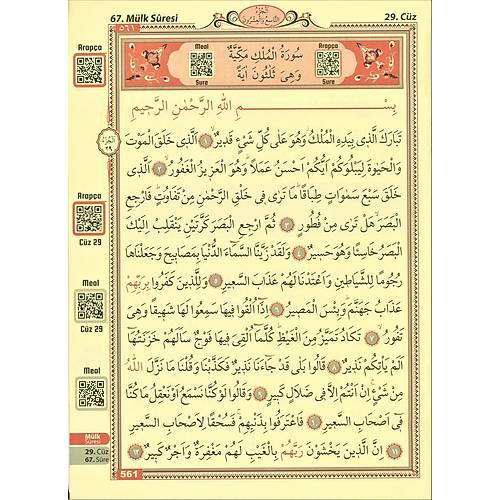 67. Mülk Sûresi
اَلْجُزْءُ التَّاسِعُ وَالْعِشْرُونَ
29. Cüz
٥٦١
Arapça
Meal
Sure
سُورَةُ الْمُلْكِ مَكِّيَّةٌ
وَهِيَ ثَلٰثُونَ اٰيَةً
Arapça
Sure
بِسْــــمِ اللهِ الرَّحْمٰنِ الرَّحِيمِ
تَبَارَكَ الَّذِى بِيَدِهِ الْمُلْكُ وَهُوَ عَلٰى كُلِّ شَيْءٍ قَدِيرٌۙ ١ اَلَّذِى خَلَقَ الْمَوْتَ
اَلْجُزْءُ ٢٩
وَالْحَيٰوةَ لِيَبْلُوَكُمْ اَيُّكُمْ اَحْسَنُ عَمَلًاؕ وَهُوَ الْعَزِيزُ الْغَفُورُۙ ٢ اَلَّذِى
خَلَقَ سَبْعَ سَمٰوَاتٍ طِبَاقًاؕ مَا تَرٰى فِى خَلْقِ الرَّحْمٰنِ مِنْ تَفَاوُتٍؕ فَارْجِعِ
Arapça
الْبَصَرَۙ هَلْ تَرٰى مِنْ فُطُورٍ ٣ ثُمَّ ارْجِعِ الْبَصَرَ كَرَّتَيْنِ يَنْقَلِبْ اِلَيْكَ
Cüz 29
الْبَصَرُ خَاسِئًا وَهُوَ حَسِيرٌ ٤ وَلَقَدْ زَيَّنَّا السَّمَٓاءَ الدُّنْيَا بِمَصَابِيحَ وَجَعَلْنَاهَا
رُجُومًا لِلشَّيَاطِينِ وَاَعْتَدْنَا لَهُمْ عَذَابَ السَّعِيرِ ٥ وَلِلَّذِينَ كَفَرُوا بِرَبِّهِمْ
Meal
عَذَابُ جَهَنَّمَؕ وَبِئْسَ الْمَصِيرُ ٦ اِذَٓا اُلْقُوا فِيهَا سَمِعُوا لَهَا شَهِيقًا وَهِىَ
Cüz 29
تَفُورُۙ ٧ تَكَادُ تَمَيَّزُ مِنَ الْغَيْظِؕ كُلَّمَٓا اُلْقِىَ فِيهَا فَوْجٌ سَاَلَهُمْ خَزَنَتُهَٓا
اَلَمْ يَاْتِكُمْ نَذِيرٌ ٨ قَالُوا بَلٰى قَدْ جَٓاءَنَا نَذِيرٌ فَكَذَّبْنَا وَقُلْنَا مَا نَزَّلَ اللهُ
Meal
مِنْ شَيْءٍۚ اِنْ اَنْتُمْ اِلَّا فِى ضَلَالٍ كَبِيرٍ ٩ وَقَالُوا لَوْ كُنَّا نَسْمَعُ اَوْ نَعْقِلُ مَا كُنَّا
فِٓى اَصْحَابِ السَّعِيرِ ١٠ فَاعْتَرَفُوا بِذَنْبِهِمْۚ فَسُحْقًا لِاَصْحَابِ السَّعِيرِ
١١ اِنَّ الَّذِينَ يَخْشَوْنَ رَبَّهُمْ بِالْغَيْبِ لَهُمْ مَغْفِرَةٌ وَاَجْرٌ كَبِيرٌ ١٢
Mülk Sûresi
29. Cüz
67. Sûre
561